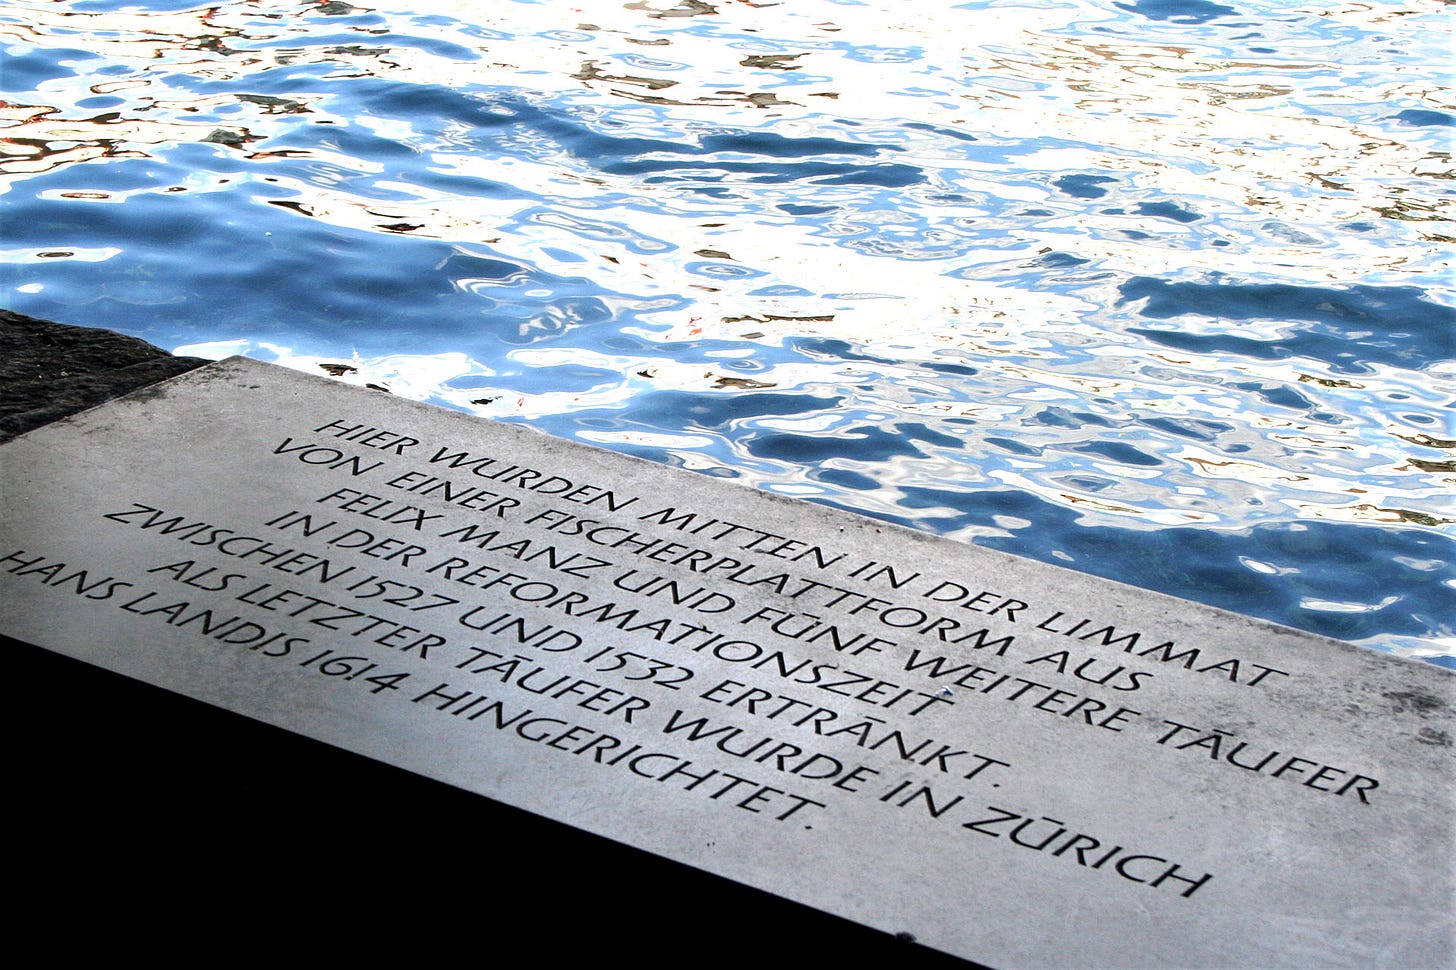 HIER WURDEN MITTEN IN DER LIMMAT
VON EINER FISCHERPLATTFORM AUS
FELIX MANZ UND FÜNF WEITERE TÄUFER
IN DER REFORMATIONSZEIT
ZWISCHEN 1527 UND 1532 ERTRÄNKT.
ALS LETZTER TÄUFER WURDE IN ZÜRICH
HANS LANDIS 1614 HINGERICHTET.